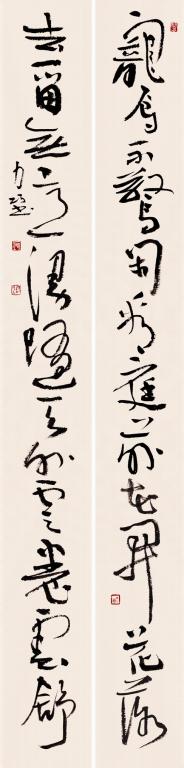 寵辱不驚閑看庭前花開花落
去留無意漫隨天外雲卷雲舒